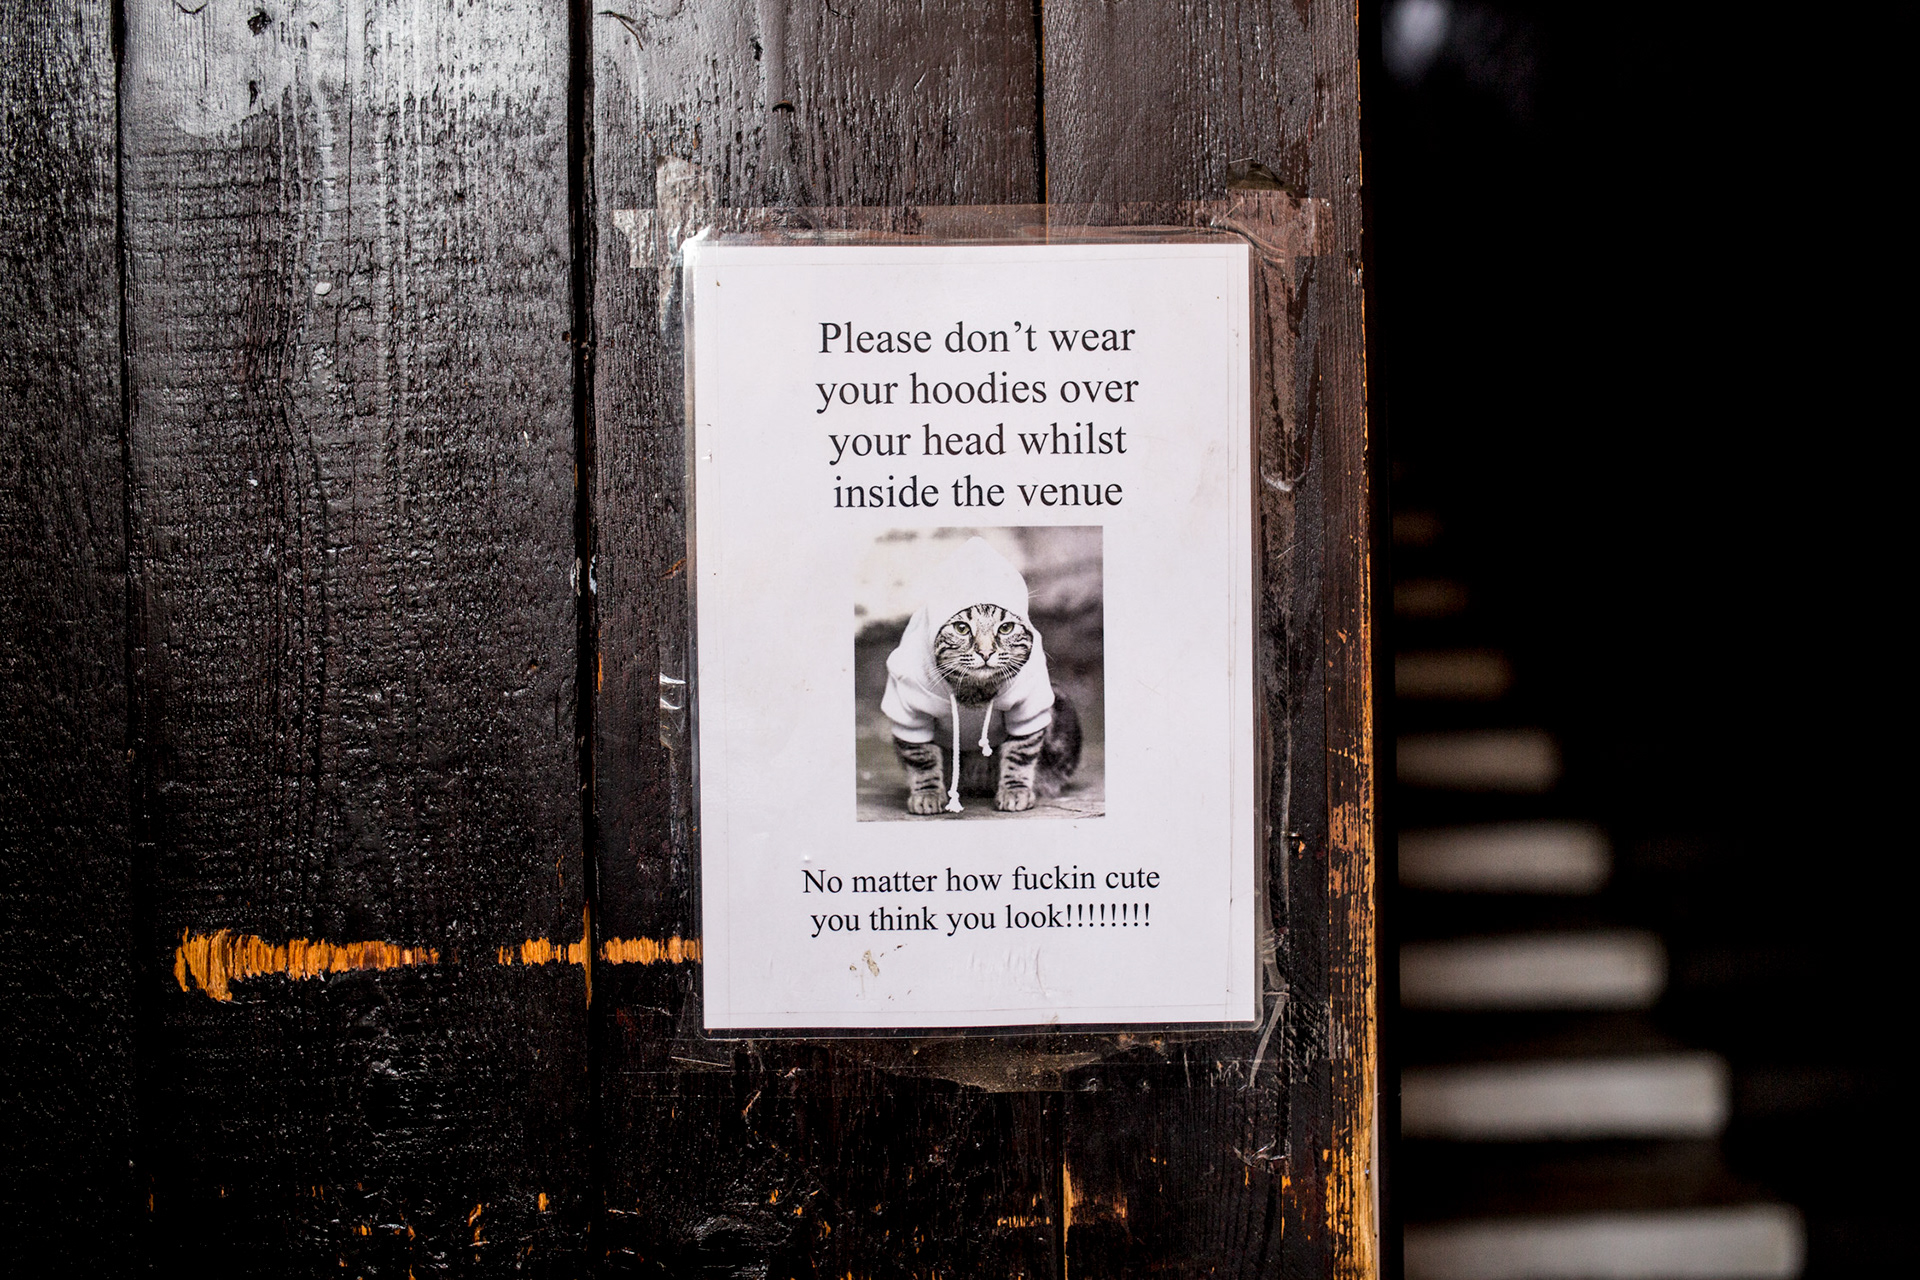 Please don’t wear
your hoodies over
your head whilst
inside the venue
No matter how fuckin cute
you think you look!!!!!!!!